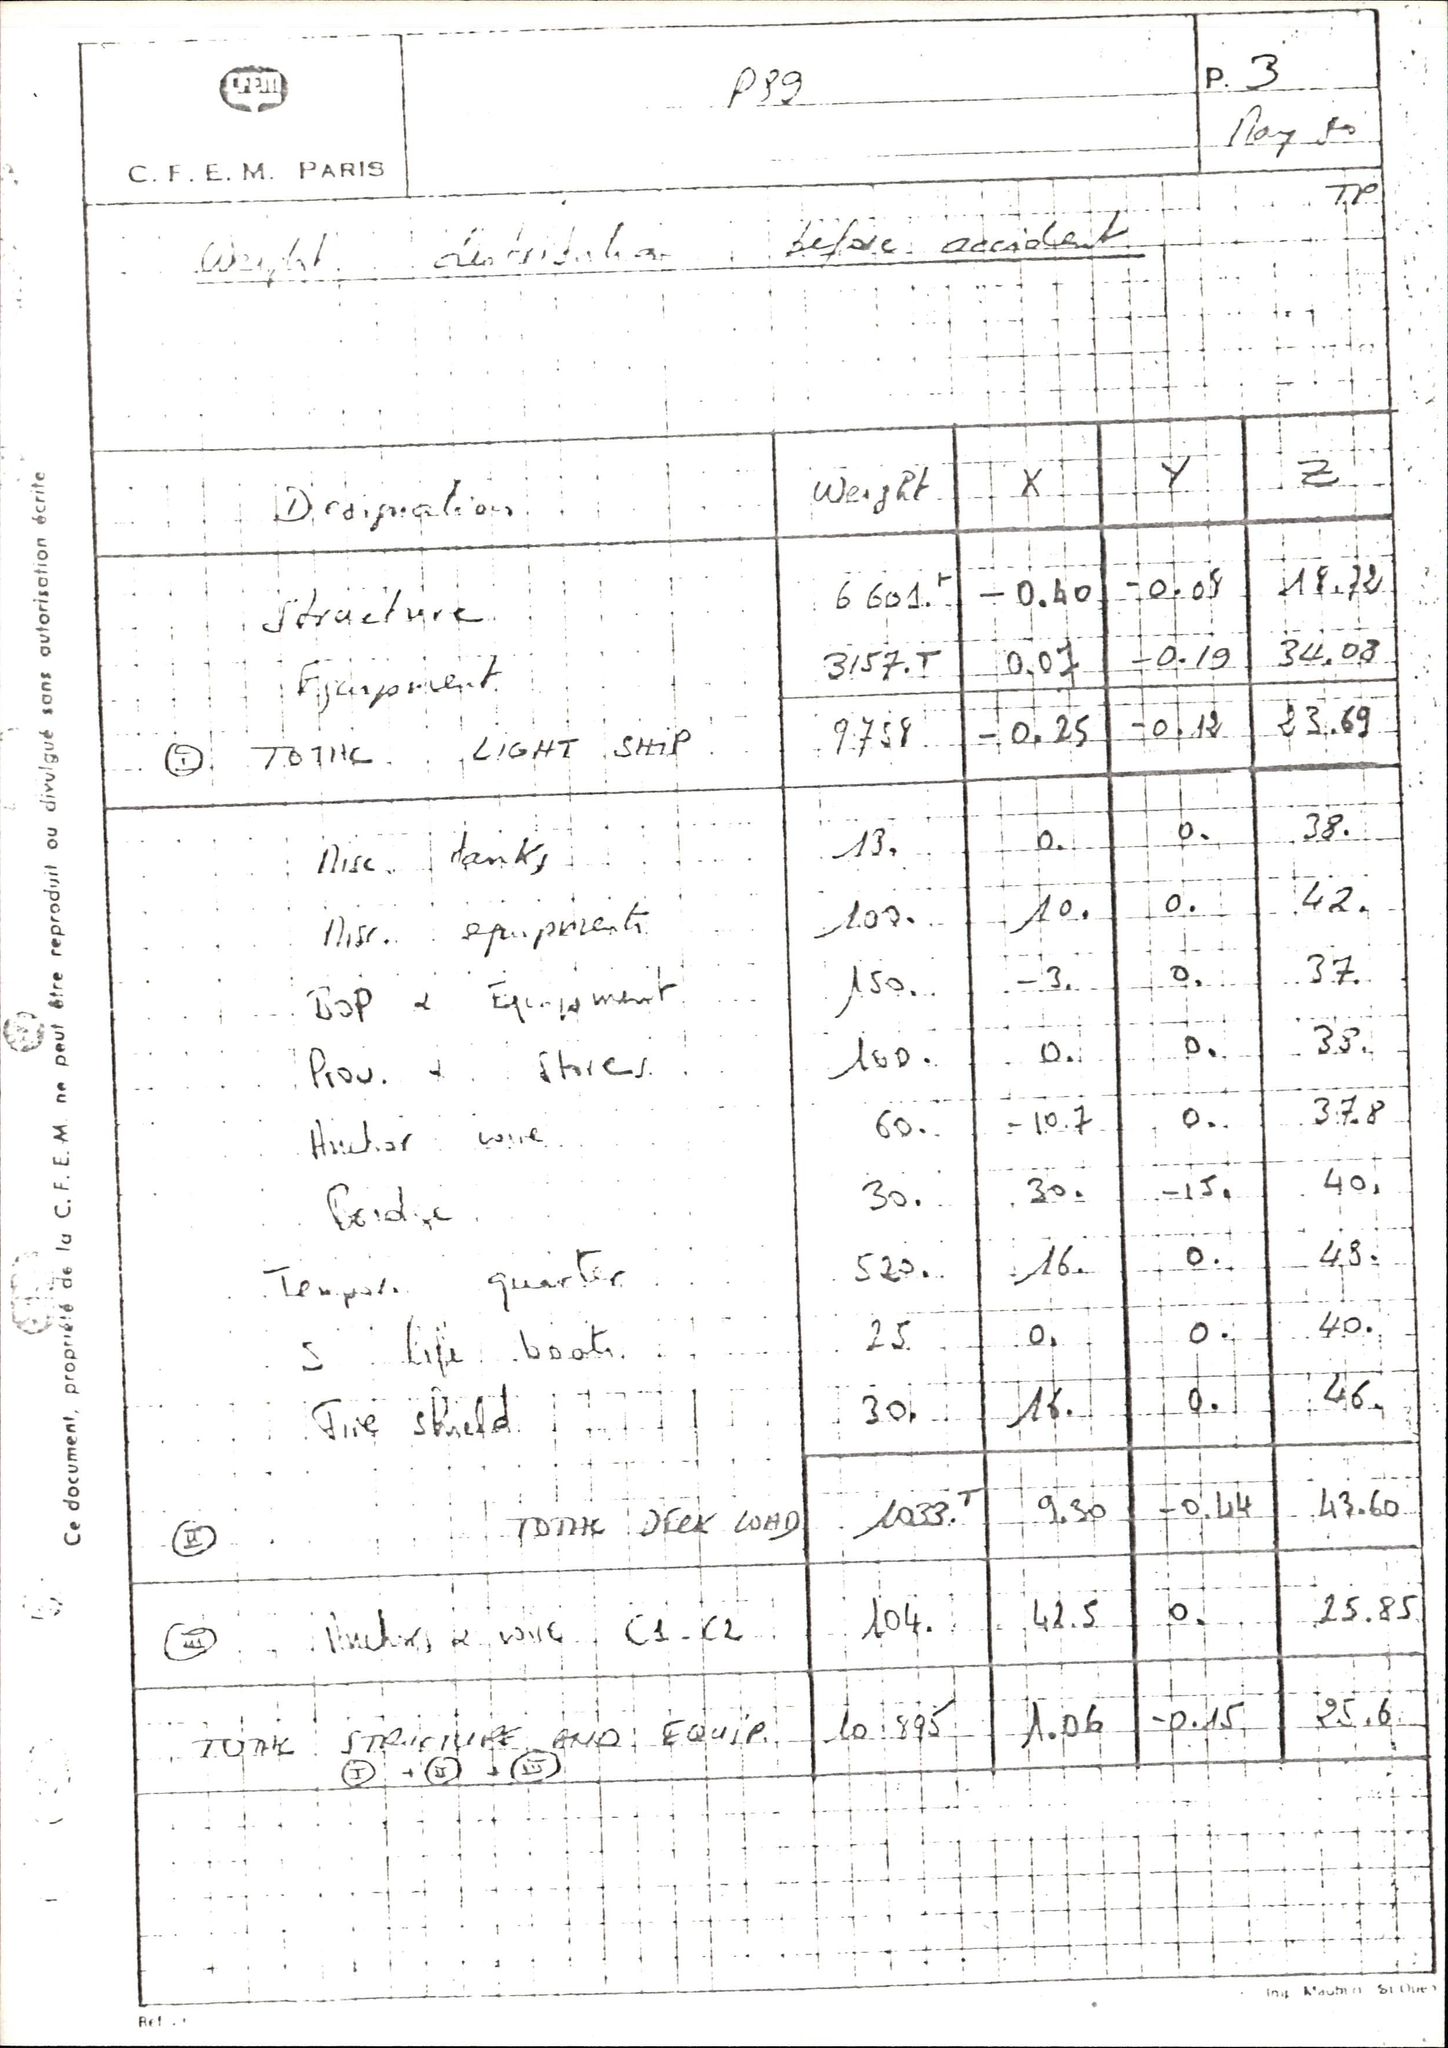 CFEM
C. F. E. M. PARIS
P39
P. 3
May 80
TP
Weight distribution before accident
Designation Weight X Y Z
Structure 6 601.T -0.40 -0.08 18.72
Equipment 3157.T 0.07 -0.19 34.08
I TOTAL LIGHT SHIP 9758 -0.25 -0.12 23.69
Misc. tanks 13. 0. 0. 38.
Misc. equipments 100. 10. 0. 42.
BOP & Equipment 150. -3. 0. 37.
Prov. + Stores 100. 0. 0. 38.
Anchor wire 60. -10.7 0. 37.8
Bridge 30. 30. -15. 40.
Tempor. quarter 520. 16. 0. 48.
5 Life boats 25 0. 0. 40.
Fire shield 30. 16. 0. 46.
II TOTAL DECK LOAD 1033.T 9.30 -0.44 43.60
III Anchors & wire C1-C2 104. 42.5 0. 25.85
TOTAL STRUCTURE AND EQUIP. 10 895 1.06 -0.15 25.6
I + II + III
Ce document, propriété de la C.F.E.M. ne peut être reproduit ou divulgué sans autorisation écrite
Ref.
Imp. St Ouen